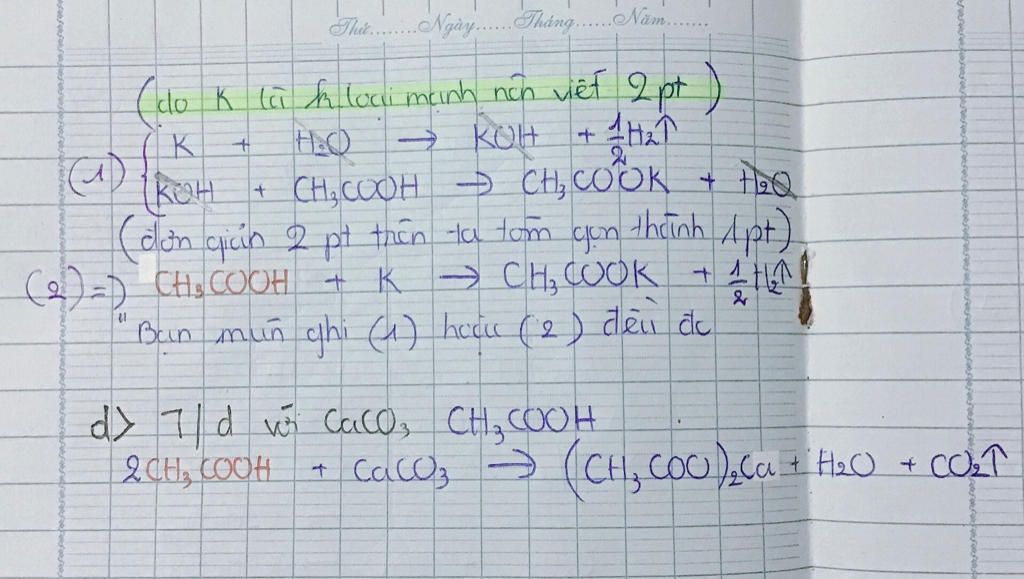 Thứ........Ngày......Tháng......Năm.......
(do K là k loại mạnh nên viết 2 pt)
K + H₂O → KOH + 1/2 H₂↑
(1) { KOH + CH₃COOH → CH₃COOK + H₂O
(đơn giản 2 pt trên ta tóm gọn thành 1 pt)
(2) =) CH₃COOH + K → CH₃COOK + 1/2 H₂↑
" Bạn muốn ghi (1) hoặc (2) đều đc
d> T/d với CaCO₃ CH₃COOH
2CH₃COOH + CaCO₃ → (CH₃COO)₂Ca + H₂O + CO₂↑